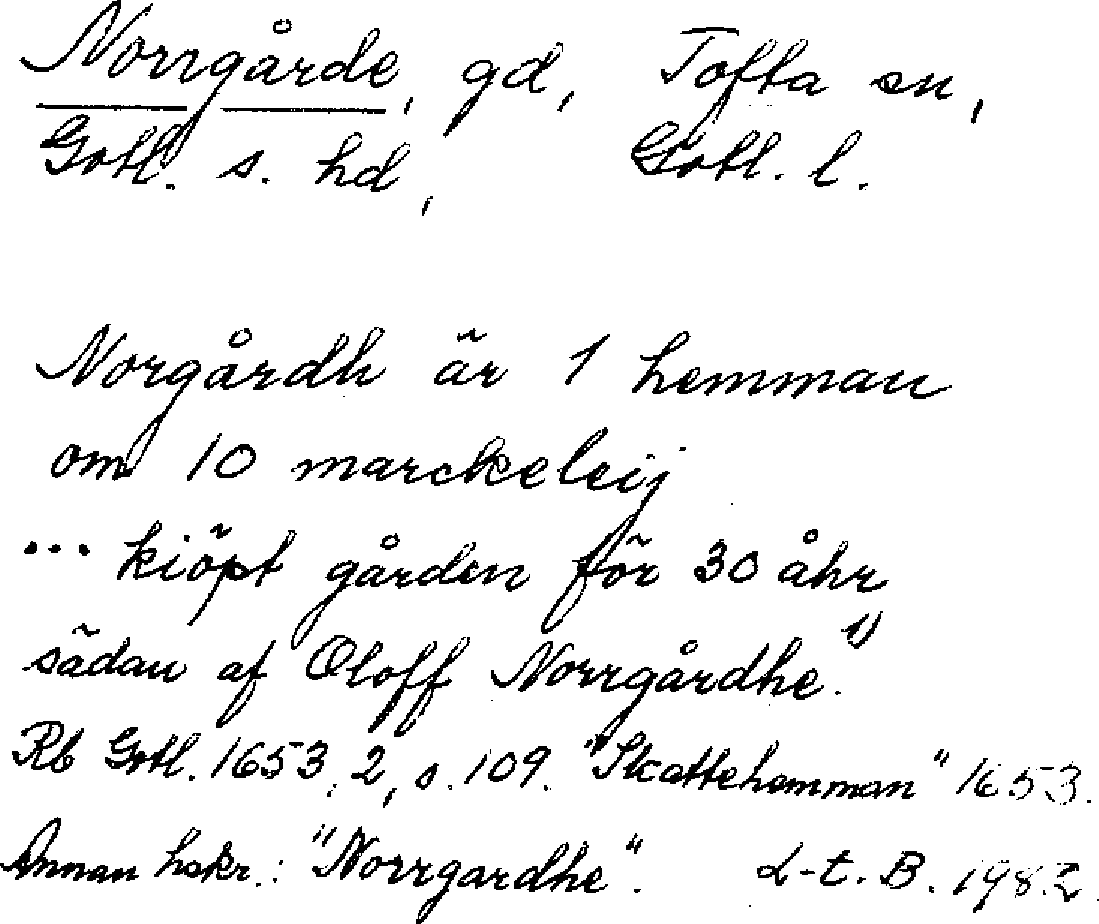 Norrgårde, gd, Tofta sn,
Gotl. s. hd, Gotl. l.
Norgårdh är 1 hemman
om 10 marckeleij
... kiöpt gården för 30 åhr
sädan af Oloff Norrgårdhe. 1)
Rb Gotl. 1653, 2, s. 109. "Skattehemman" 1653.
Annan hskr.: "Norrgardhe". L-t. B. 1982